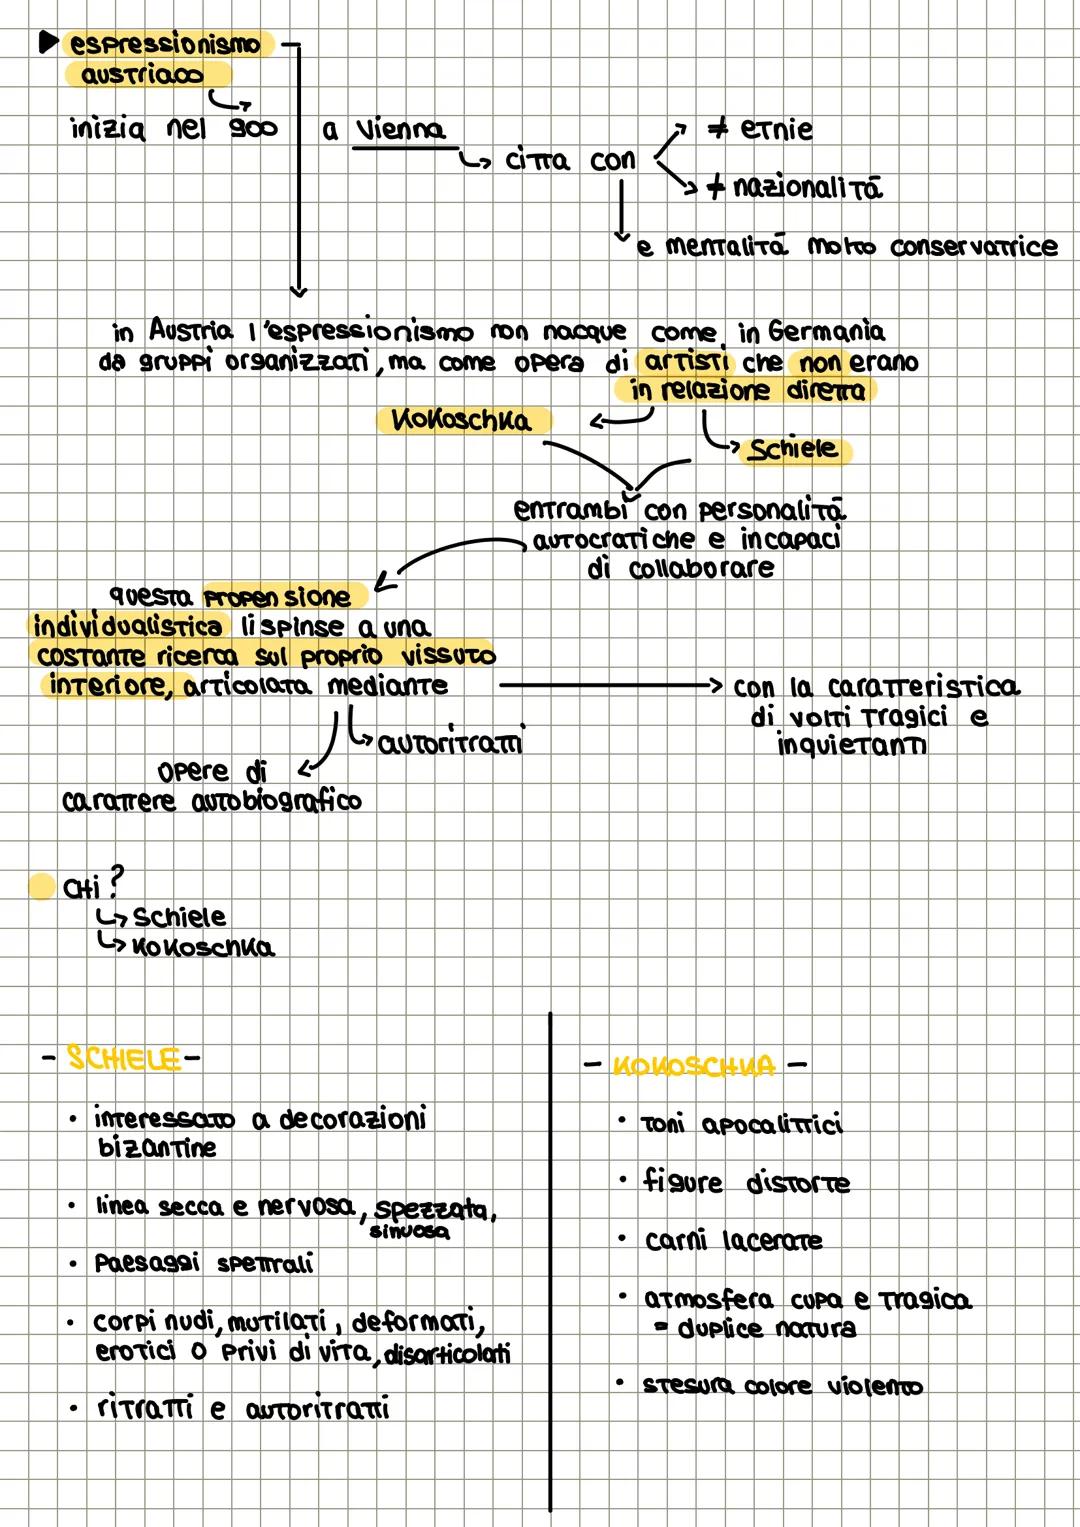 espressionismo
austriaco
inizia nel 900 a Vienna
≠ etnie
città con
≠ nazionalità
e mentalità molto conservatrice
in Austria l'espressionismo non nacque come in Germania
da gruppi organizzati, ma come opera di artisti che non erano
in relazione diretta
Kokoschka
Schiele
entrambi con personalità
autocratiche e incapaci
di collaborare
questa propensione
individualistica li spinse a una
costante ricerca sul proprio vissuto
interiore, articolata mediante
con la caratteristica
di volti tragici e
inquietanti
autoritratti
opere di
carattere autobiografico
CHi?
Schiele
Kokoschka
- SCHIELE -
• interessato a decorazioni
bizantine
• linea secca e nervosa, spezzata,
sinuosa
• Paesaggi spettrali
• corpi nudi, mutilati, deformati,
erotici o privi di vita, disarticolati
• ritratti e autoritratti
- KOKOSCHKA -
• toni apocalittici
• figure distorte
• carni lacerate
• atmosfera cupa e tragica
= duplice natura
• stesura colore violento